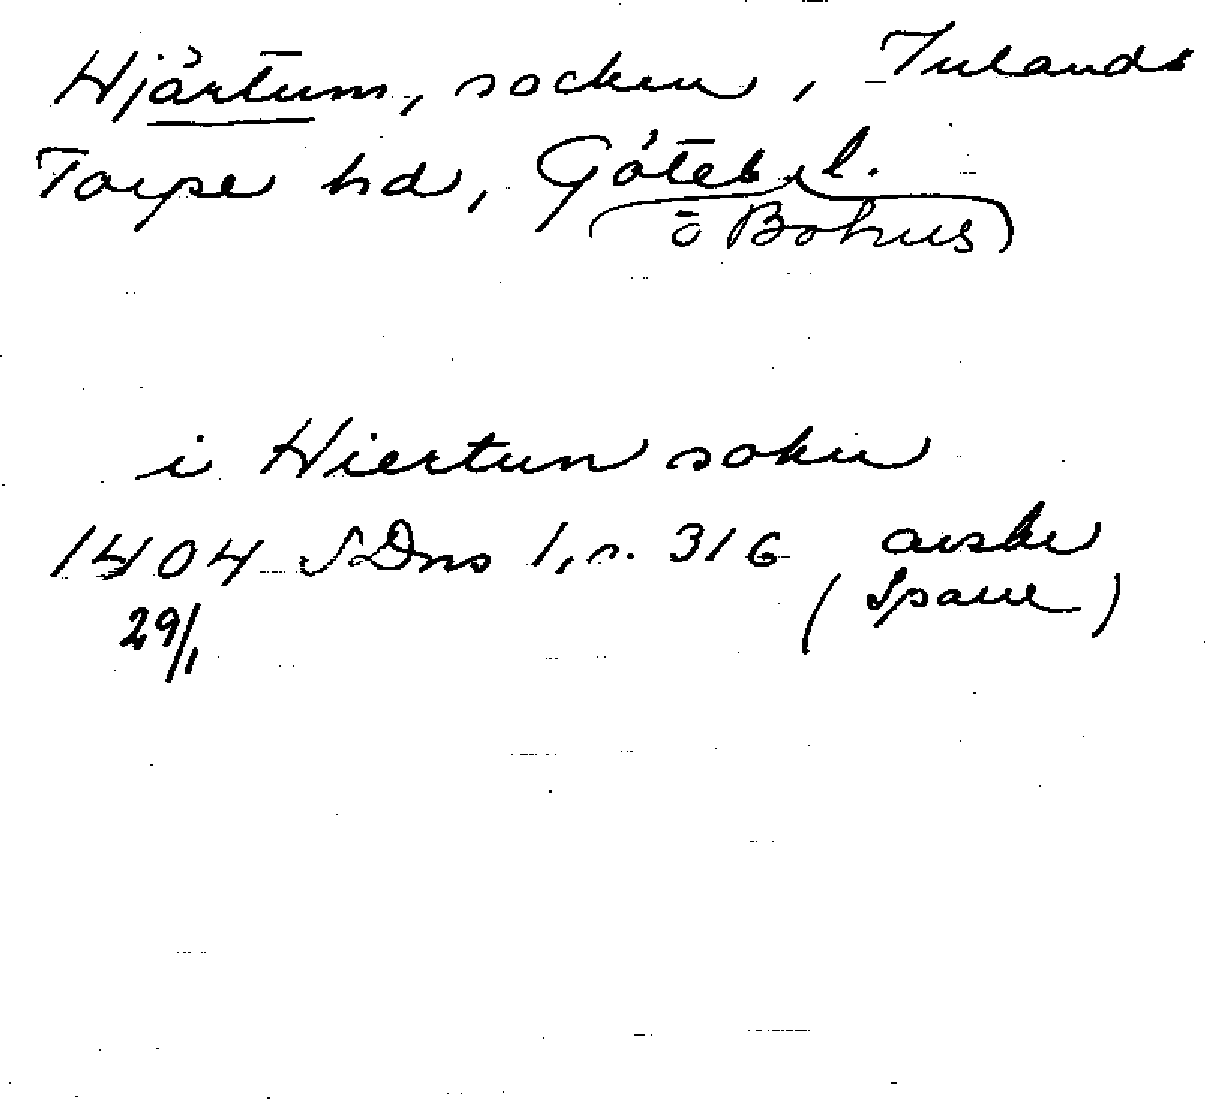 Hjärtum, socken, Inlands
Torpe hd, Göteb. l.
(o Bohus)
i Hiertun sokn
1404 SDns 1, s. 316 avskr
29/1 (Sparre)